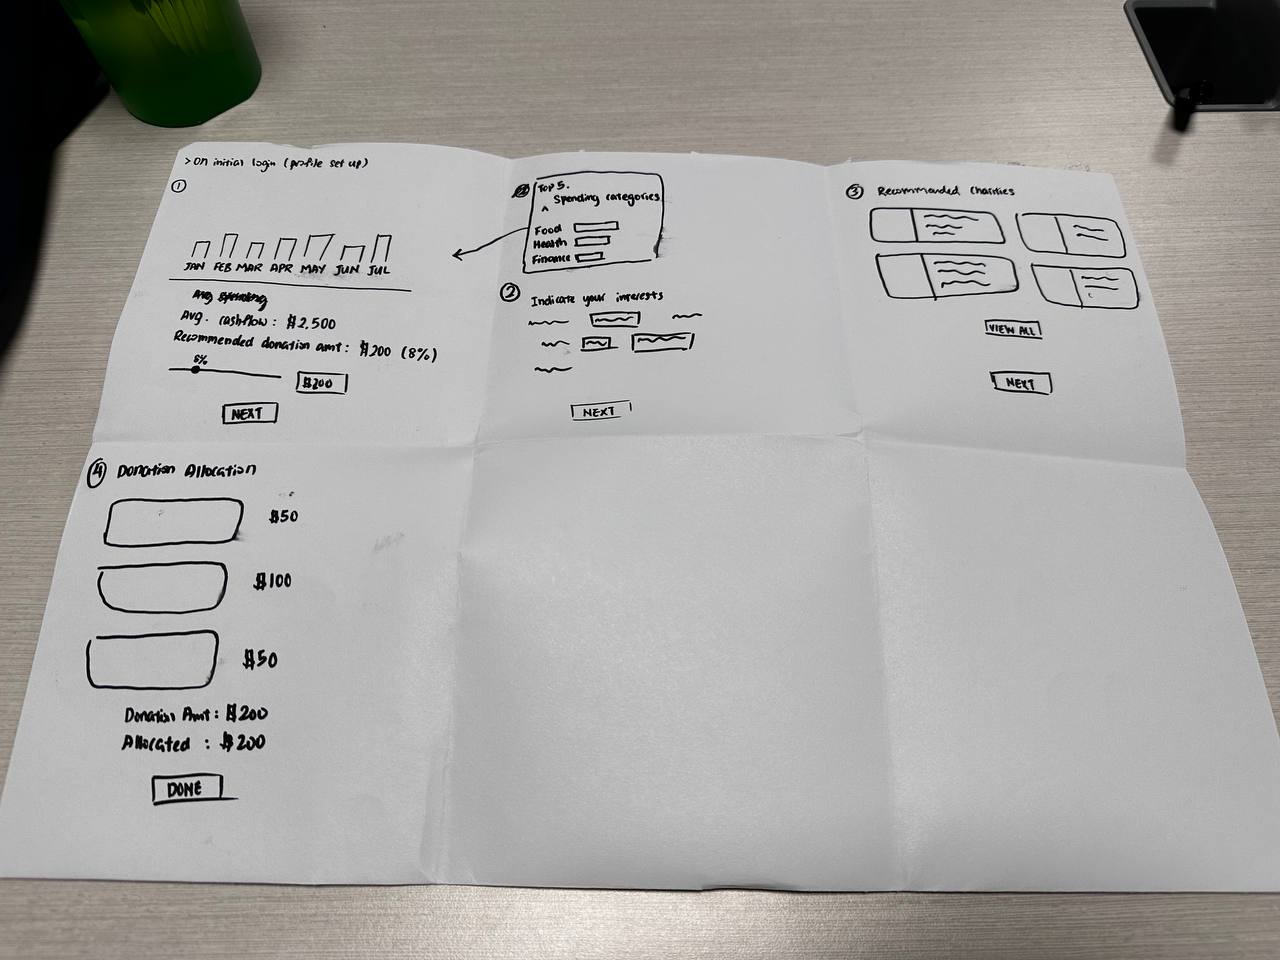 > On initial login (profile set up)
①
JAN FEB MAR APR MAY JUN JUL
Avg. cashflow : $2,500
Recommended donation amt: $200 (8%)
8%
$200
NEXT
Top 5.
^ Spending categories
Food
Health
Finance
② Indicate your interests
NEXT
③ Recommended Charities
VIEW ALL
NEXT
④ Donation Allocation
$50
$100
$50
Donation Amt: $200
Allocated : $200
DONE